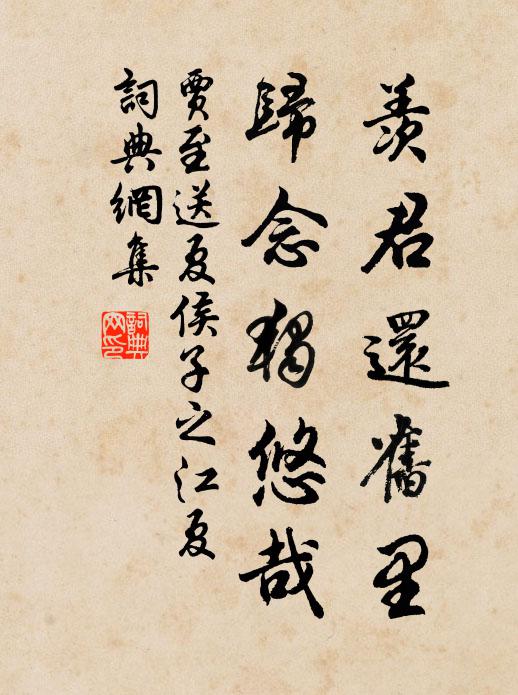 羨君還舊里
歸念獨悠哉
賈至送夏侯子之江夏
詞典網集
詞典網印